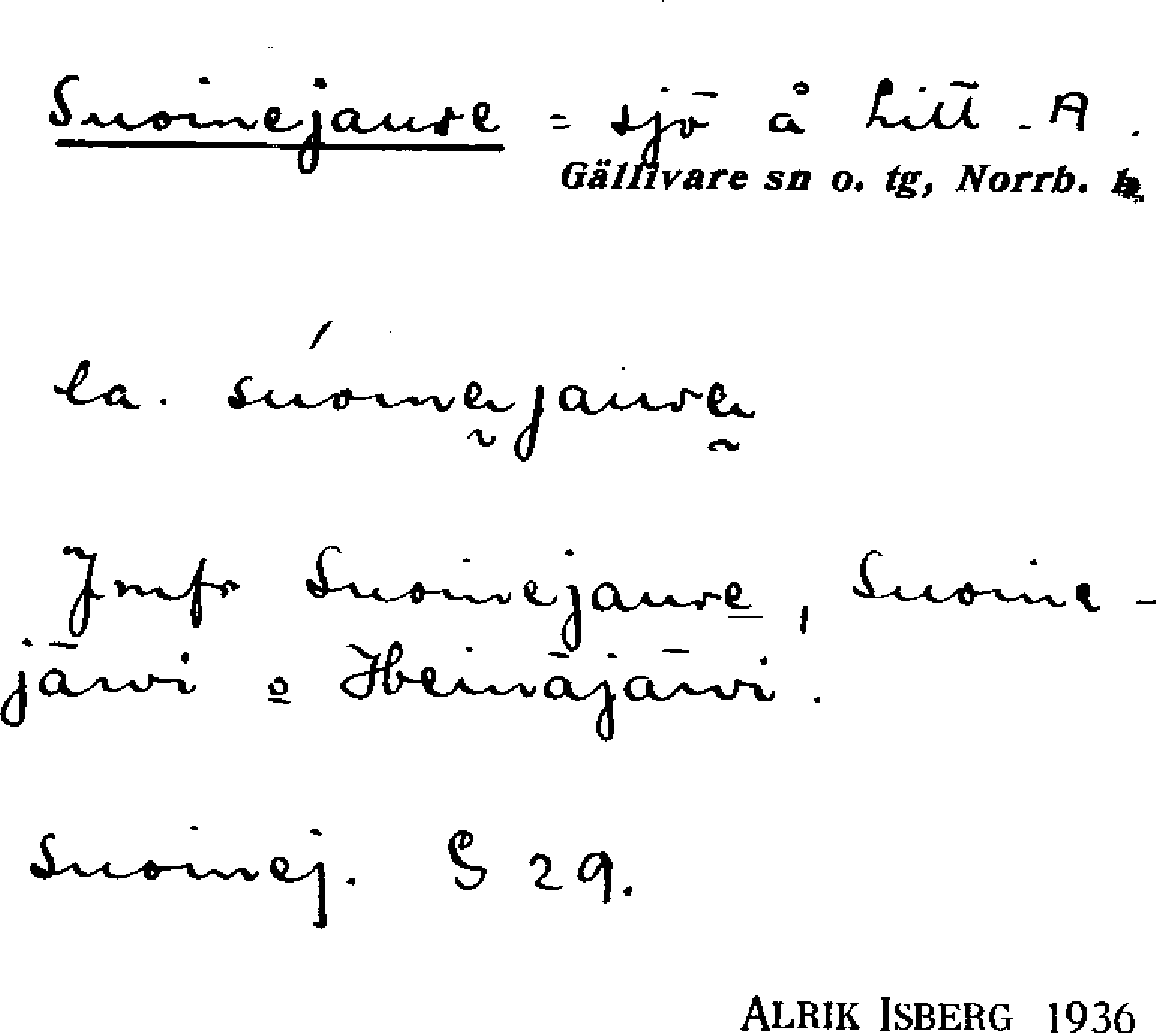 Suoinejaure = sjö å Litt. A.
Gällivare sn o. tg, Norrb.
la. súoinejaure
Jmfr Suoinejaure, Suoine-
järvi o Heinäjärvi.
Suoinej. § 29.
ALRIK ISBERG 1936